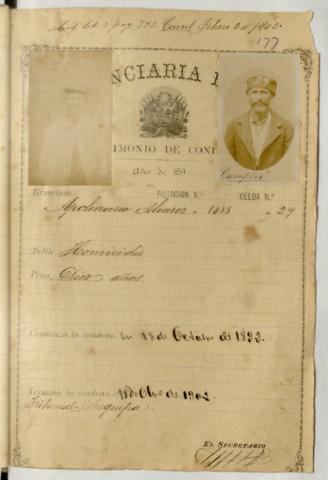 177
NCIARIA
IMONIO DE CON
Año de 189
Cumplió
Rematado FILIACION N.º CELDA N.º
Apolinario Alvarez 1888 29
Delito Homicidio
Pena Diez años
Comienza la condena en 18 de Octubre de 1892.
Termina la condena 18 de Obre de 1902
Tribunal Arequipa
EL SECRETARIO